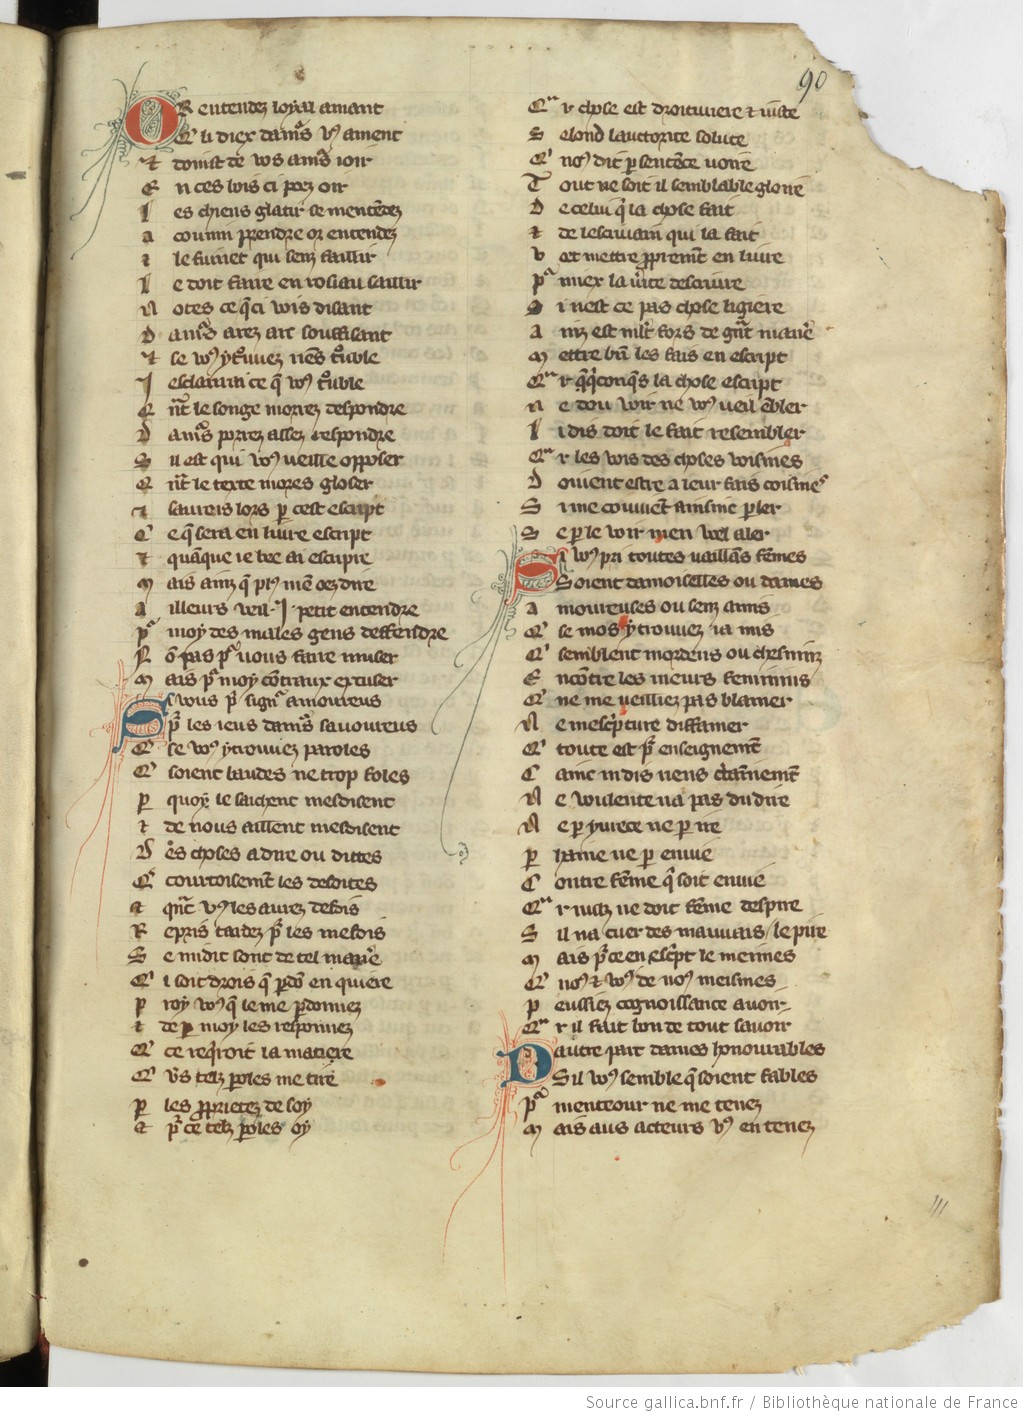 90
OR entendez loyal amant
Q' li diex damo's v9 ament
Et doinst de vos amo's ioir
E n ces bois ci poez oir
L es chiens glatir se mentedez
A counin prendre or entendez
E t le furet qui senz faillir
L e doit faire en rosiau saillir
N otes ce q̄ ci vois disant
D amo's arez art souffisant
E t se vo9 y trouuez nes trouble
I esclarirai ce q̄ vo9 trouble
Q nt le songe morrez despondre
D amo's porrez assez respondre
S il est qui vo9 veille opposer
Q nt le texte mores gloser
E t saureis lors p cest escript
C e q̄ sera en liure escript
E t quāque ie bee ai escripre
M ais ainz q̄ pl9 men oez dire
A illeurs veil .I. petit entendre
P moy des males gens deffendre
N ō pas po' uous faire muser
M ais po' moy cōtraux excuser
Si vous pri seigno's amoureus
Po' les ieus damo's sauoureus
Q' se vo9 y trouuez paroles
Q' soient baudes ne trop foles
P quoy le saichent mesdisent
E t de nous aillent mesdisent
D es choses a dire ou dittes
Q' courtoisemt les desdites
E t qnt v9 les aurez desdis
R epris tardez po' les mesdis
S e mi dit sont de tel maniere
Q' i soit drois q̄ pdō en quiere
P roy vo9 q̄ le me pdonniez
E t de p moy les responniez
Q' ce reqroit la matiere
Q' vers telz paroles me tire
P les pprietez de soy
E t po' ce telz paroles oy
Q r chose est droituriere & iuste
S elond lauctorite soluste
Q' no9 dit p sentēce uoire
T out ne soit il semblable gloire
D e celui q' la chose fait
E t de lescriuain qui la fait
V et mettre ppremt en liure
P miex la uite descriure
S i nest ce pas chose ligiere
A inz est mlt fors de gnt maniere
M ettre bien les fais en escript
Q r q q̄ conq̄s la chose escript
N e dou voir ne vo9 veil ēbler
L i dis doit le fait resembler
Q r les vois des choses voisines
D oiuent estre a leur fais coisines
S i me couuient ainsinc pler
S e p le voir men vuel aler
Si vo9 pri toutes vaillās femes
Soient damoiselles ou dames
A moureuses ou senz amis
Q' se mos y trouuez ia mis
Q' semblent mordens ou chesniuz
E ncōtre les meurs feminins
Q' ne me veilliez pas blamer
N e mescpture diffamer
Q' toute est po' enseignemt
C ainc ni dis riens ctainnemt
N e voulente na pas du dire
N e p yuiece ne p ire
P haine ne p enuie
C ontre feme q̄ soit en uie
Q r nulz ne doit feme despire
S il na cuer des mauuais le pire
M ais po' ce en escpt le meimes
Q' no9 & vo9 de no9 meismes
P eussiez cognoissance auoir
Q r il fait bon de tout sauoir
Dautre part dames honourables
Sil vo9 semble q̄ soient fables
P menteour ne me tenez
M ais aus acteurs v9 en tenez
Source gallica.bnf.fr / Bibliothèque nationale de France